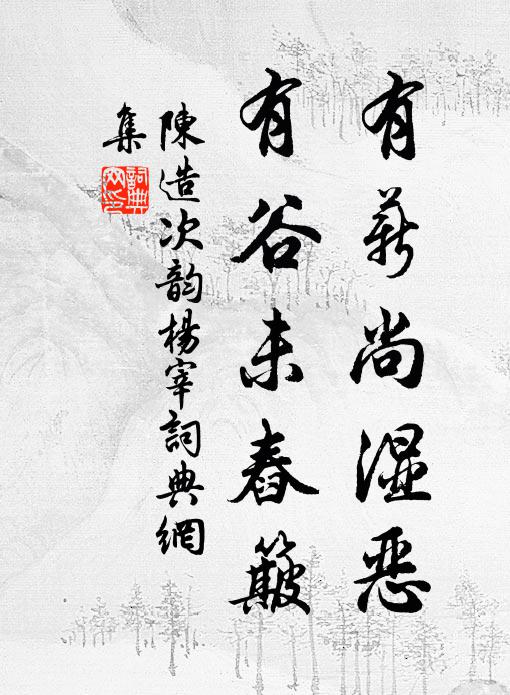 有薪尚湿恶
有谷未舂簸
陳造次韵楊宰詞典網
集
詞典網